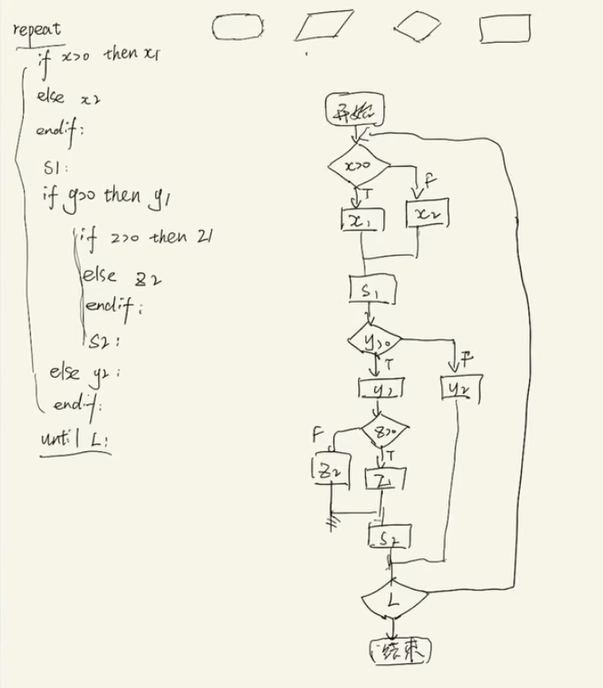 repeat
if x>0 then x1
else x2
endif:
S1:
if y>0 then y1
if z>0 then z1
else z2
endif:
S2:
else y2:
endif:
until L:
开始
x>0
T
F
x1
x2
S1
y>0
T
F
y1
y2
z>0
F
T
z2
z1
S2
L
结束